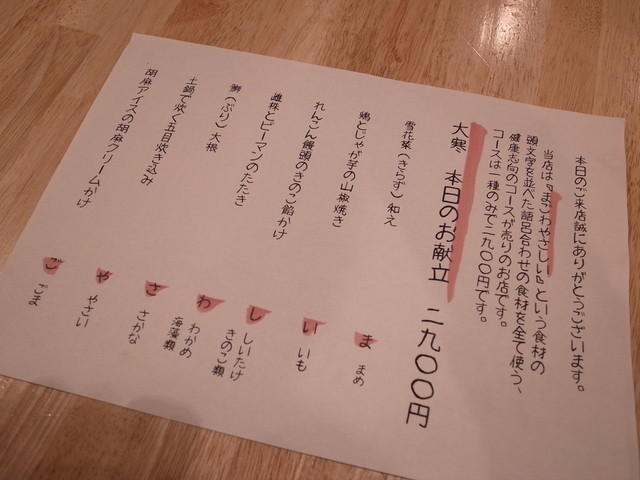 本日のご来店誠にありがとうございます。
当店は『まごわやさしい』という食材の
頭文字を並べた語呂合わせの食材を全て使う、
健康志向のコースが売りのお店です。
コースは一種のみで二九〇〇円です。
大寒 本日のお献立 二九〇〇円
雪花菜(きらず)和え
鶏とじゃが芋の山椒焼き
れんこん饅頭のきのこ餡かけ
雌株とピーマンのたたき
鰤(ぶり)大根
土鍋で炊く五目炊き込み
胡麻アイスの胡麻クリームかけ
ま まめ
い いも
し しいたけ
きのこ類
わ わかめ
海藻類
さ さかな
や やさい
ご ごま